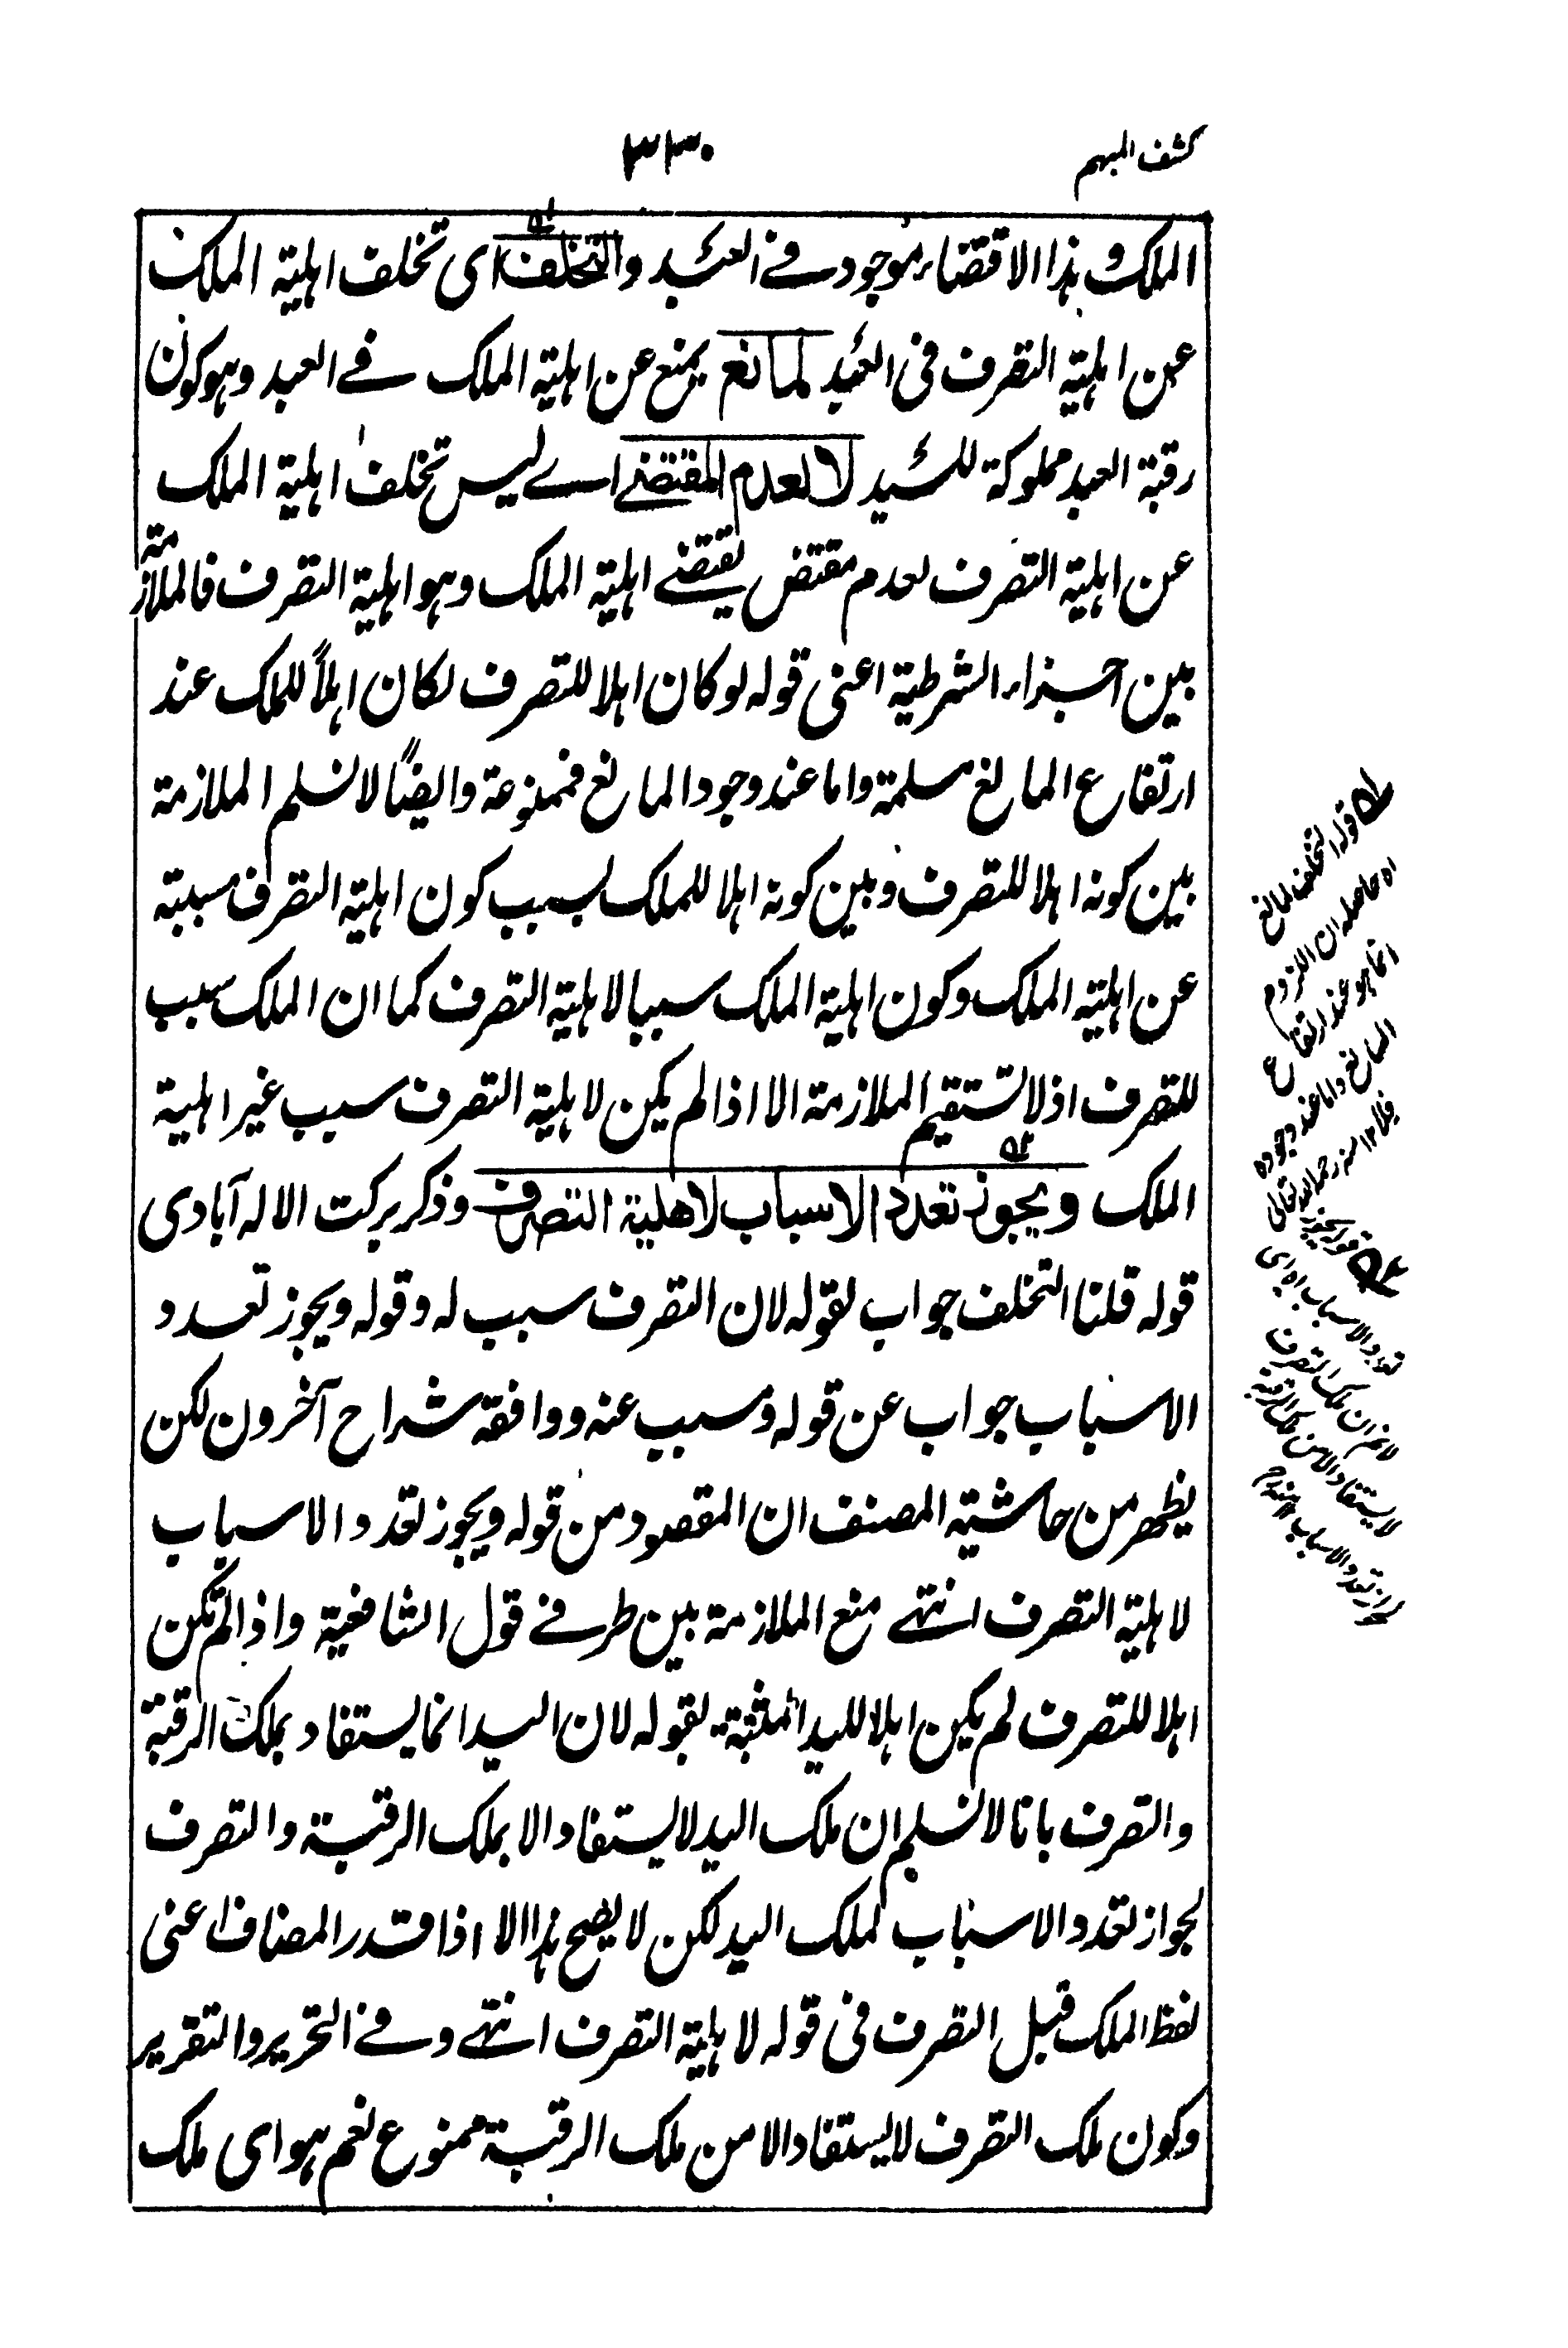 كشف المبهم
٣٣٠
الملك وهذا الاقتضاء موجود في العبد والتخلف اى تخلف اهلية الملك
عن اهلية التصرف في العبد لمانع يمنع عن اهلية الملك في العبد وهو كون
رقبة العبد مملوكة للسيد لا لعدم المقتضى اى ليس تخلف اهلية الملك
عن اهلية التصرف لعدم مقتض يقتضى اهلية الملك وهو اهلية التصرف فالملازمة
بين اجزاء الشرطية اعنى قوله لو كان اهلا للتصرف لكان اهلاً للملك عند
ارتفاع المانع مسلمة واما عند وجود المانع فممنوعة وايضًا لا نسلم الملازمة
بين كونه اهلا للتصرف وبين كونه اهلا للملك بسبب كون اهلية التصرف مسببة
عن اهلية الملك وكون اهلية الملك سببا لاهلية التصرف كما ان الملك سبب
للتصرف اذ لا تستقيم الملازمة الا اذا لم يكن لاهلية التصرف سبب غير اهلية
الملك ويجوز تعدد الاسباب لاهلية التصرف وذكر بركت الاله آبادى
قوله قلنا التخلف جواب لقوله لان التصرف سبب له وقوله ويجوز تعدد
الاسباب جواب عن قوله ومسبب عنه ووافقه شراح آخرون لكن
يظهر من حاشية المصنف ان المقصود من قوله ويجوز تعدد الاسباب
لاهلية التصرف انتهى منع الملازمة بين طرفى قول الشافعية واذا لم تكن
اهلا للتصرف لم يكن اهلا لليد المثبتة بقوله لان اليد انما يستفاد بملك الرقبة
والتصرف بانا لا نسلم ان ملك اليد لا يستفاد الا بملك الرقبة والتصرف
لجواز تعدد الاسباب لملك اليد لكن لا يصح هذا الا اذا قدر المضاف اعنى
لفظ الملك قبل التصرف في قوله لاهلية التصرف انتهى وفى التحرير والتقرير
وكون ملك التصرف لا يستفاد الا من ملك الرقبة ممنوع نعم هو اى ملك
قوله التخلف لمانع
اه حاصله ان اللزوم
انما هو عند ارتفاع
المانع واما عند وجوده
فلا ١٢ منه رحمه الله تعالى
قوله يجوز
تعدد الاسباب اه اى
لا نم ان ملك التصرف
لا يستفاد الا من ملك الرقبة
لجواز تعدد الاسباب